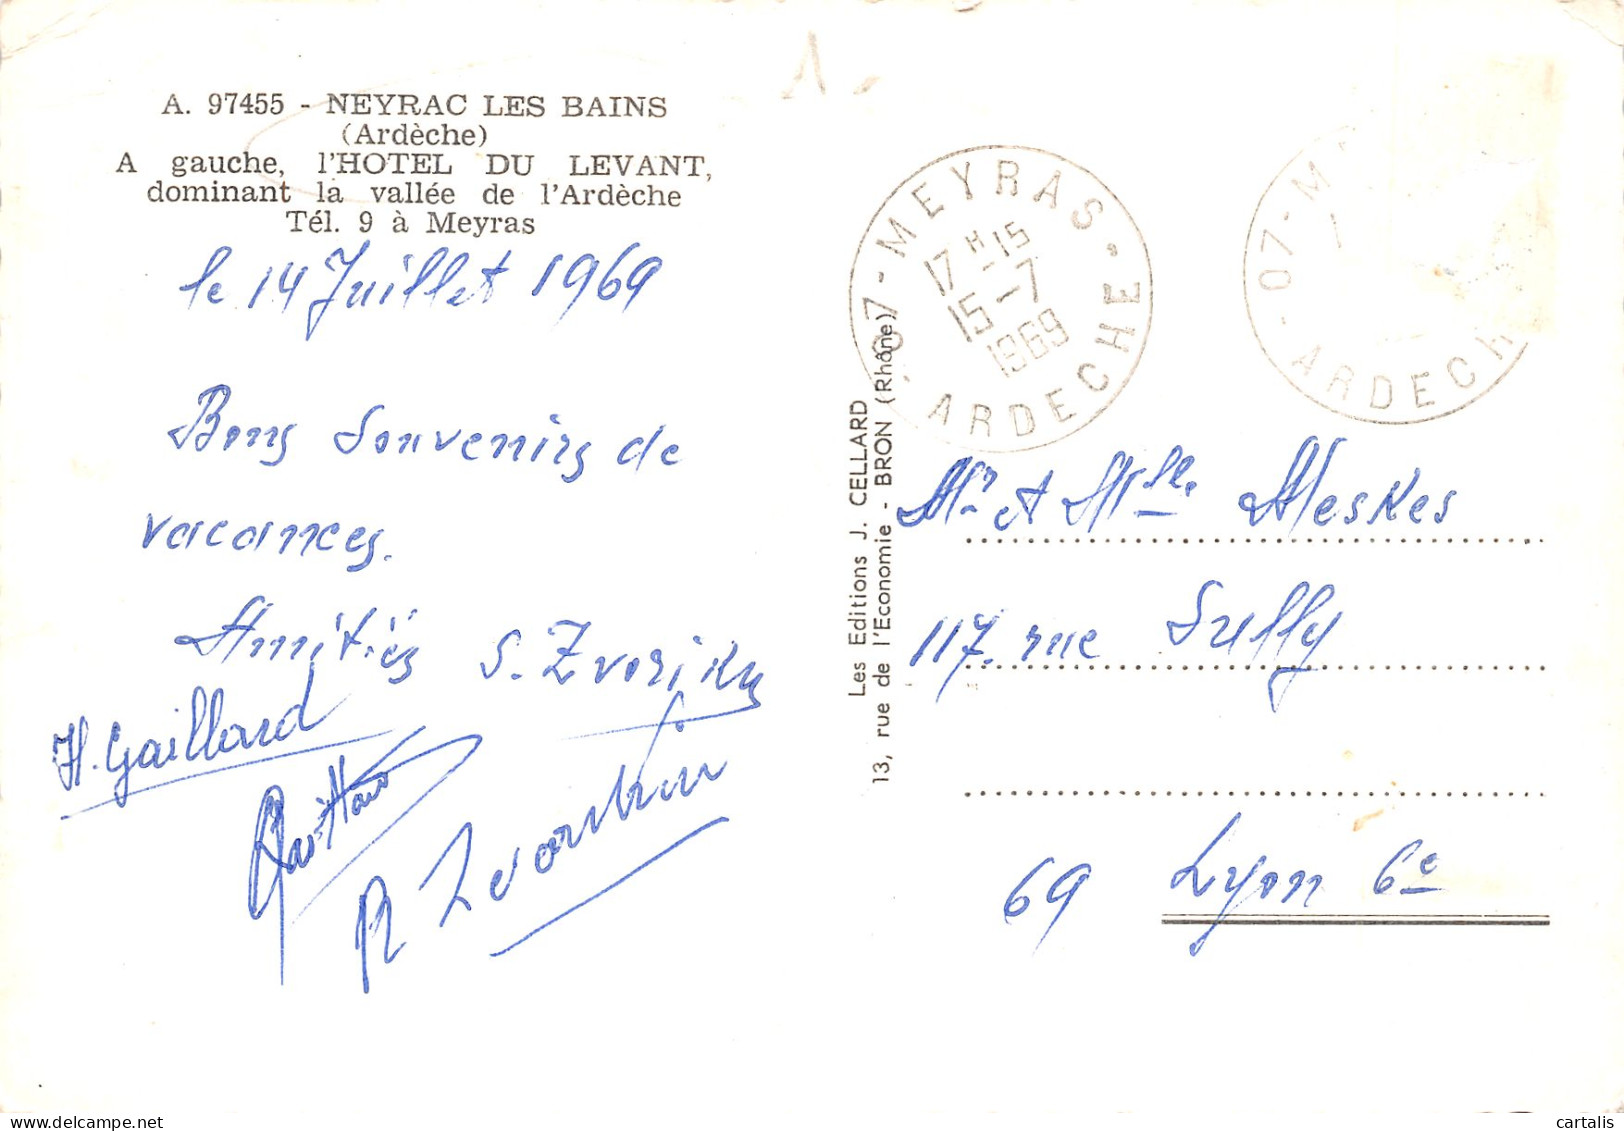 A. 97455 - NEYRAC LES BAINS
(Ardèche)
A gauche, l'HOTEL DU LEVANT,
dominant la vallée de l'Ardèche
Tél. 9 à Meyras
le 14 Juillet 1969
Bons Souvenirs de
vacances.
Amitiés S. Zvoriky
H. Gaillard
R
Les Editions J. CELLARD
13, rue de l'Economie - BRON (Rhône)
07 - MEYRAS - ARDECHE
17 H -15
15 -7
1969
07 - M
ARDECH
Mr et Mlle Meskes
117, rue Sully
69 Lyon 6e
cartalis
www.delcampe.net